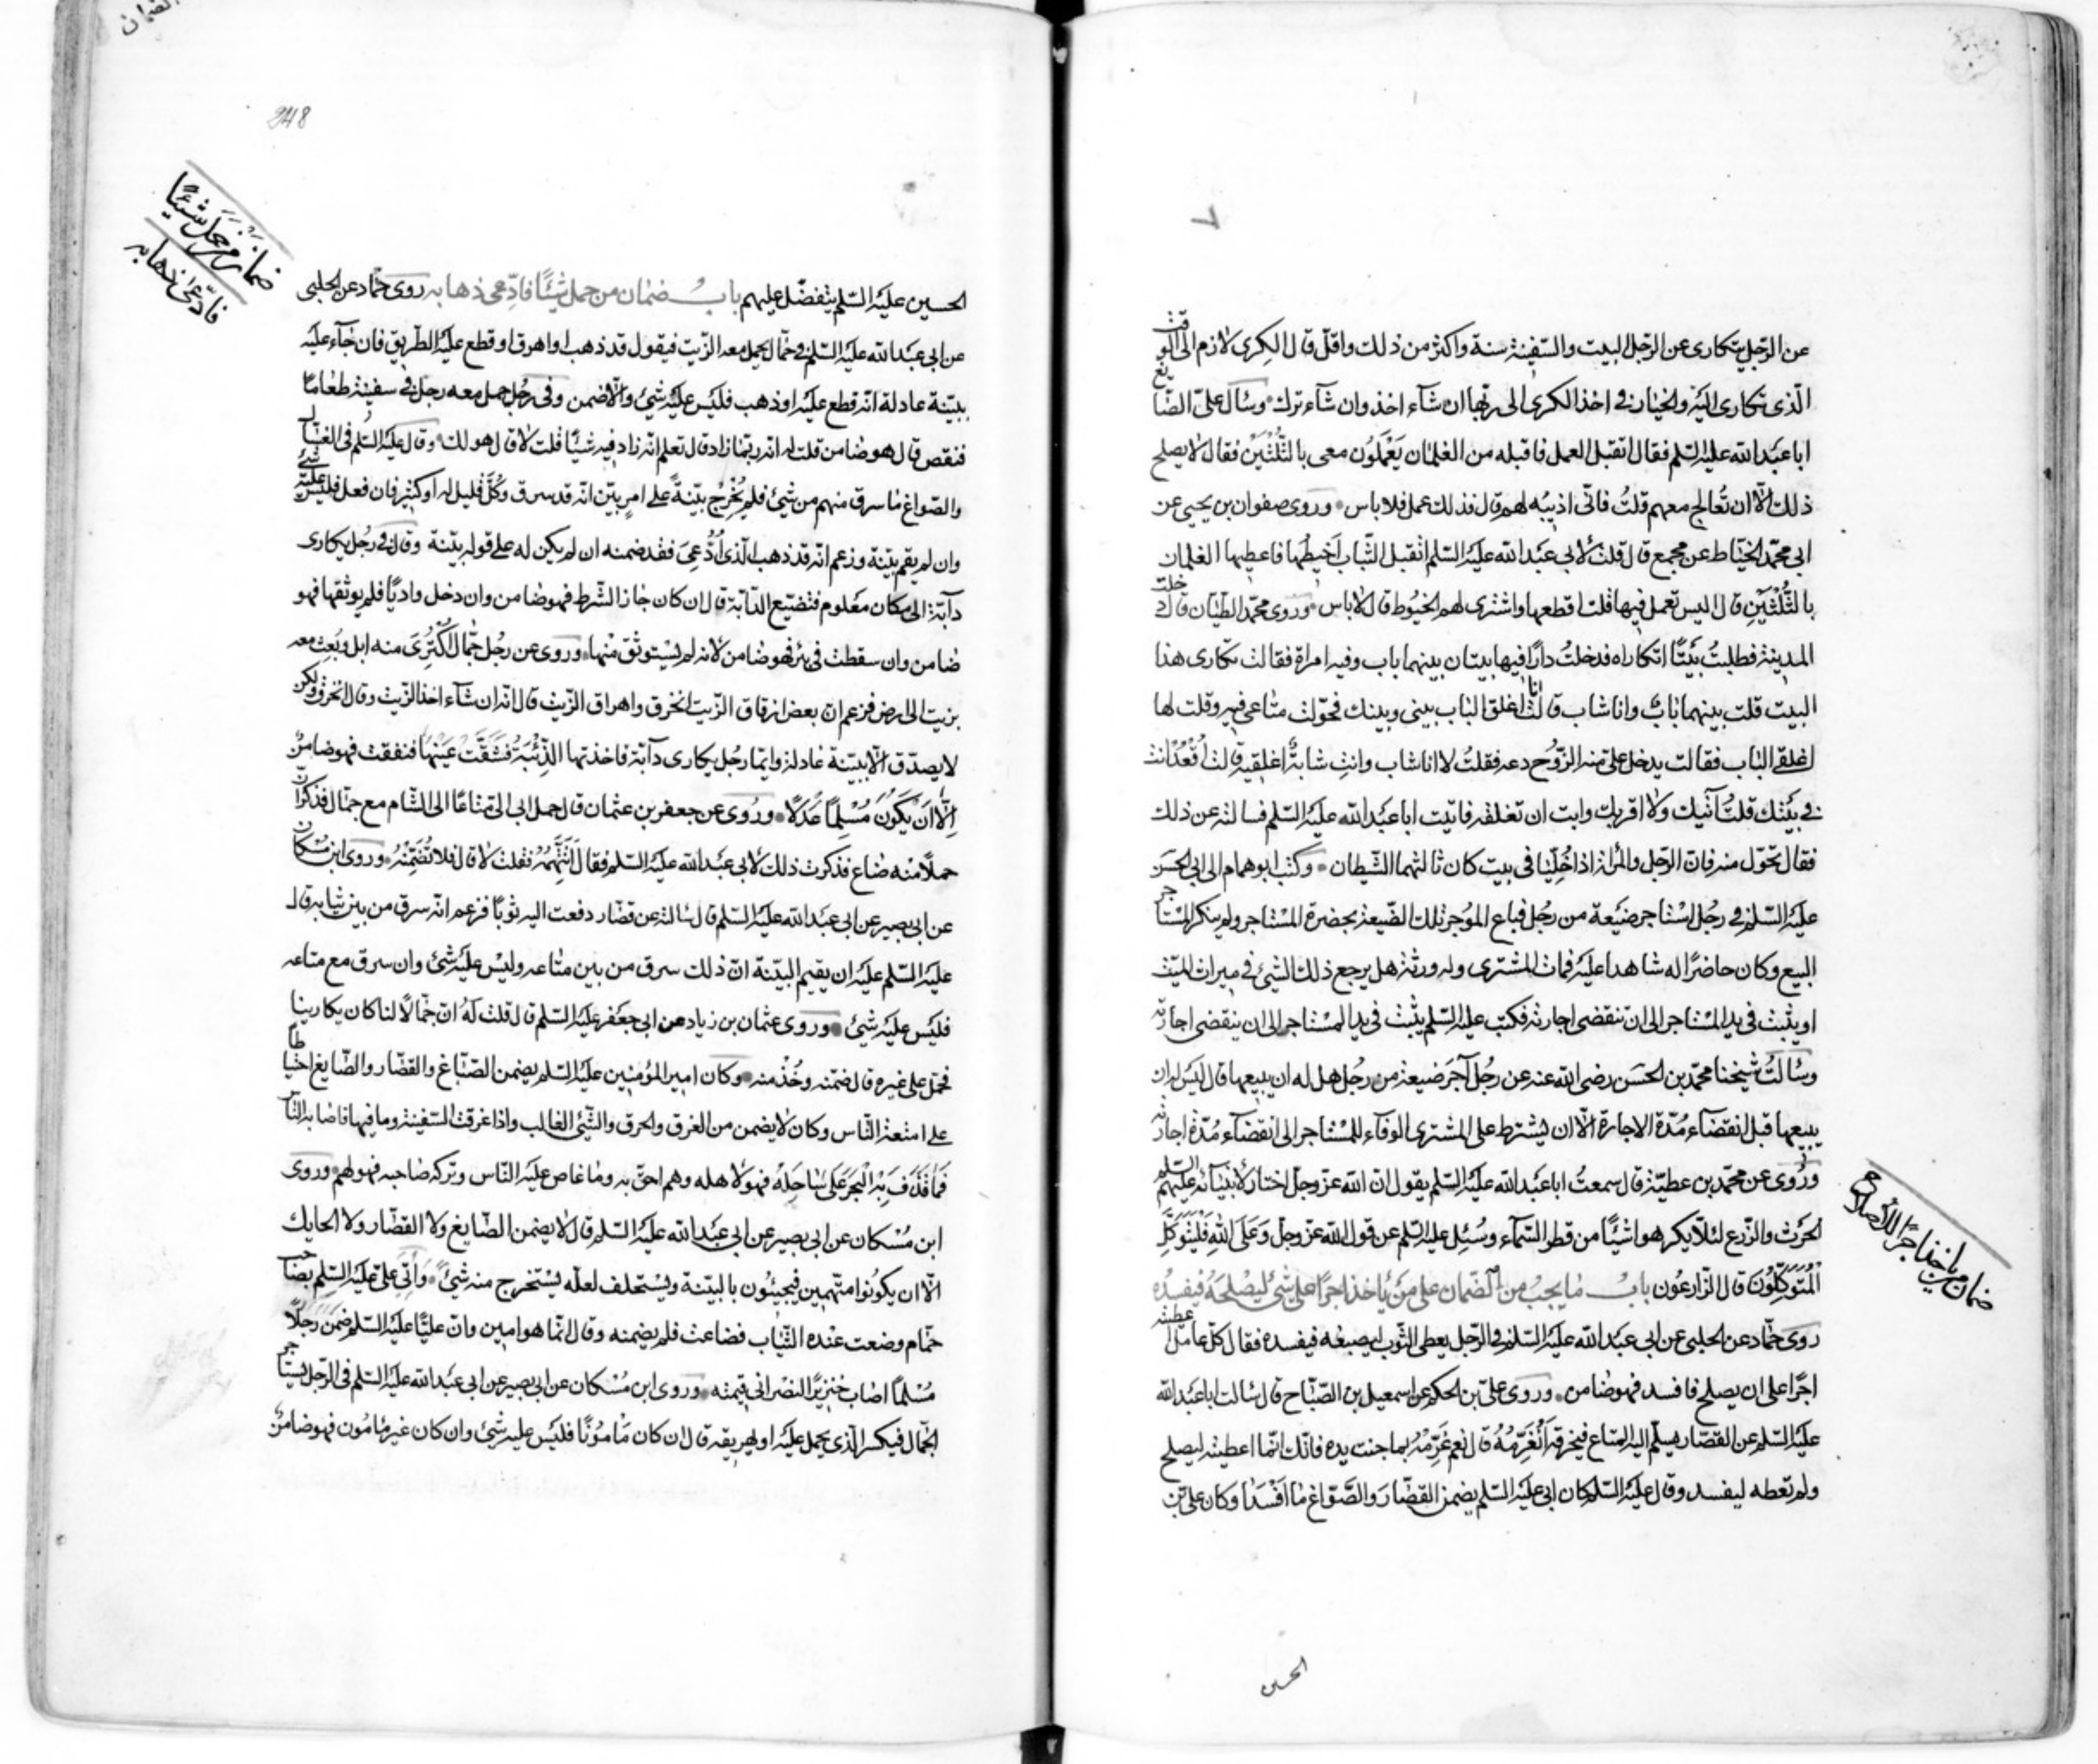 عن الرّجل يتكارى عن الرّجل البيت والسّفينة سنة واكثر من ذلك واقلّ قال الكرى لازم الى الوقت
الّذى تكارى اليه والخيار فى اخذ الكرى الى ربّها ان شآء اخذ وان شآء ترك وسال علىّ الصّايغ
ابا عبد الله عليه السّلم فقال اتقبل العمل فاقبله من الغلمان يَعْمَلُون معى بالثّلثَيْن فقال لا يصلح
ذلك الّا ان تُعالج معهم قلتُ فانّى اذيبُه لهم قال فذلك عمل فلا باس وروى صفوان بن يحيى عن
ابى محمّد الخيّاط عن مجمع قال قلت لابى عبد الله عليه السّلم اتقبل الثّياب اَخيطُها فاعطيها الغلمان
بالثُّلُثَيْنِ قال اليس تعمل فيها قلت اقطعها واشترى لهم الخيُوط قال لا باس وروى محمّد الطيّان قال دخلت
المدينة فطلبتُ بَيْتًا اتكاراه فدخلتُ دارًا فيها بيتان بينهما باب وفيه امراة فقالت تكارى هذا
البيت قلت بينهما بابٌ وانا شاب قالت انا اغلق الباب بينى وبينك فحوّلت متاعى فيه وقلت لها
اغلقى الباب فقالت يدخل علىّ منه الرَّوْح دعه فقلتُ لا انا شاب وانتِ شابةٌ اغلقيه قالت اُقعُد انت
فى بَيْتك فلستُ آتيك ولا اقربك وابت ان تغلقه فاتيت ابا عبد الله عليه السّلم فسالته عن ذلك
فقال تحوّل منه فانّ الرّجل والمراة اذا خُلِّيا فى بيت كان ثالثهما الشّيطان وكتب ابو همام الى ابى الحسن
عليه السّلم فى رجُل استاجر ضيْعة من رجُل فباع المُوجر تلك الضّيعة بحضرة المستاجر ولم ينكر المستاجر
البيع وكان حاضرًا له شاهدا عليه فمات المشترى وله ورثة هل يرجع ذلك الشّئ فى ميراث الميّت
او يثبت فى يد المستاجر الى ان تنقضى اجارته فكتب عليه السّلم يثبت فى يد المستاجر الى ان ينقضى اجارته
وسَالتُ شيخنا محمّد بن الحسَن رضى الله عنه عن رجُل آجَر ضيعة من رجُل هل له ان يبيعها قال ليس له ان
يبيعها قبل انقضآء مُدّة الاجارة الّا ان يشترط على المشترى الوفآء للمستاجر الى انقضآء مُدّة اجارته
ورُوى عن محمّد بن عطيّة قال سمعتُ ابا عبد الله عليه السّلم يقول انّ الله عزّ وجلّ اختار لانبيآئه عليهم السلم
الحَرْث والزّرع لئلّا يكرهوا شيئًا من قطر السّمآء وسُئِل عليه السّلم عن قول الله عزّ وجلّ وَعَلَى اللّٰهِ فَلْيَتَوَكَّلِ
الْمُتَوَكِّلُوْنَ قال الزّارعُون بابُ ما يجبُ من الضّمان على مَنْ ياخذ اجرًا على شئ ليُصْلحَهُ فيفسِدُه
روى حمّاد عن الحلبى عن ابى عبد الله عليه السّلم فى الرّجل يعطى الثّوب ليصبغه فيفسده فقال كلّ عامل اعطيته
اجرًا على ان يصلح فافسد فهو ضامن وروى علىّ بن الحكم عن اسمعيل بن الصّبّاح قال سالت ابا عبد الله
عليه السّلم عن القصّار يسلّم اليه المتاع فيخرقه اَنُغَرِّمُهُ قال نعم غَرِّمْهُ بما جنت يده فانّك انّما اعطيته ليصلح
ولم تعطه ليفسد وقال عليه السّلم كان ابى عليه السّلم يضمن القصّار والصّوّاغ ما اَفْسَدا وكان علىّ بن
ضمان من ياخذ اجرًا للاصلاح
الحسين
248
ضمان من حمل شيئًا
فادّعى ذهابه
الحسين عليه السّلم يتفضّل عليهم بابُ ضمان من حمل شيئًا فادّعى ذهابه روى حمّاد عن الحلبى
عن ابى عبد الله عليه السّلم فى حمّال يحمل معه الزّيت فيقول قد ذهب او اهرق او قطع عليه الطّريق فان جآء عليه
ببيّنة عادلة انّه قطع عليه او ذهب فليس عليه شئ والّا ضمن وفى رجُل حمل معه رجل فى سفينة طعامًا
فنقص قال هو ضامن قلت له انّه ربّما زاد قال تعلم انّه زاد فيه شيئًا قلت لا قال هو لك وقال عليه السّلم فى الغسّال
والصّواغ ما سرق منهم من شئ فلم يُخْرِجْ بيّنةً على امرٍ بيّن انّه قد سرق وكلّ قليل له او كثير فان فعل فليس عليه شئ
وان لم يقم بيّنة وزعم انّه قد ذهب الّذى اُدُّعِىَ فقد ضمنه ان لم يكن له على قوله بيّنة وقال فى رجُل يكارى
دآبّة الى مكان معلوم فتضيّع الدّابّة قال ان كان جاز الشّرط فهو ضامن وان دخل واديًا فلم يوثقها فهو
ضامن وان سقطت فى بئر فهو ضامن لانه لم يستوثق منها وروى عن رجُل جمّال اُكْتُرِىَ منه ابل وبُعِث معه
بزيت الى ارض فزعم انّ بعض ازقاق الزّيت انخرق واهراق الزّيت قال انّه ان شآء اخذ الزّيت وقال انخرق ولكن
لا يصدّق الّا ببيّنة عادلة وايّما رجُل يكارى دآبّة فاخذتها الذِّئْبَةُ فَشَقَّتْ عَيْنَها فنفقت فهو ضامنٌ
اِلّا اَنْ يَكُوْنَ مُسْلِمًا عَدْلًا ورُوى عن جعفر بن عثمان قال حمل ابى الى متاعًا الى الشّام مع جمّال فذكر انّ
حملًا منه ضاع فذكرت ذلك لابى عبد الله عليه السّلم فقال اَتَتَّهِمُهُ فقلت لا قال فلا تُضَمِّنْهُ وروى ابن مُسْكان
عن ابى بصير عن ابى عبد الله عليه السّلم قال سالته عن قصّار دفعت اليه ثوبًا فزعم انّه سرق من بين ثيابه قال
عليه السّلم عليه ان يقيم البيّنة انّ ذلك سرق من بين متاعه وليس عليه شئ وان سرق مع متاعه
فليس عليه شئ وروى عثمان بن زياد عن ابى جعفر عليه السّلم قال قلت له انّ جمّالًا لنا كان يكارينا
فحمل على غيره قال ضمّنه وخُذْ منه وكان امير المؤمنين عليه السّلم يضمن الصّبّاغ والقصّار والصّايغ احتياطًا
على امتعة النّاس وكان لا يضمن من الغرق والحرق والشّئ الغالب واذا غرقت السّفينة وما فيها فاصابه النّاس
فَمَا قَذَفَ بِهِ الْبَحْرُ عَلَى سَاحِلِهِ فهو لاهله وهم احقّ به وما غاص عليه النّاس وتركه صاحبه فهو لهم وروى
ابن مُسْكان عن ابى بصير عن ابى عبد الله عليه السّلم قال لا يضمن الصّايغ ولا القصّار ولا الحايك
الّا ان يكونوا متّهمين فيجيئون بالبيّنة ويستحلف لعلّه يستخرج منه شئ واُتِىَ علىّ عليه السّلم بصاحب
حمّام وضعت عنده الثّياب فضاعت فلم يضمنه وقال انّما هو امين وانّ عليًّا عليه السّلم ضمّن رجُلًا
مُسْلمًا اصاب خنزيرًا لنصرانى قيمته وروى ابن مُسْكان عن ابى بصير عن ابى عبد الله عليه السّلم فى الرّجل يستاجر
الجمّال فيكسر الّذى يحمل عليه او يهريقه قال ان كان مامُونًا فليس عليه شئ وان كان غير مامُون فهو ضامنٌ